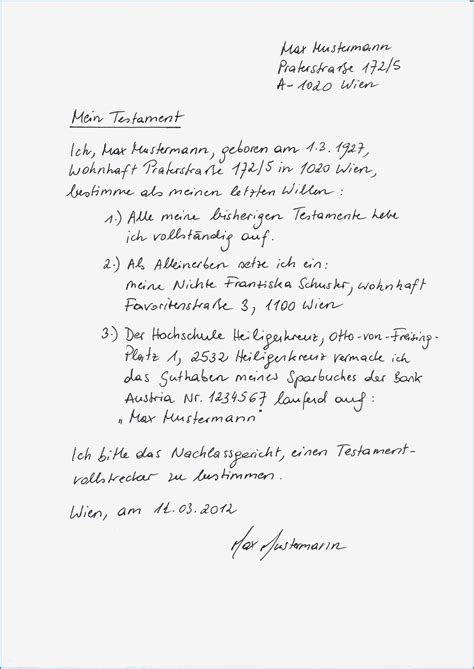 Max Mustermann
Praterstraße 172/5
A-1020 Wien
Mein Testament
Ich, Max Mustermann, geboren am 1.3.1927,
wohnhaft Praterstraße 172/5 in 1020 Wien,
bestimme als meinen letzten Willen:
1.) Alle meine bisherigen Testamente hebe
ich vollständig auf.
2.) Als Alleinerben setze ich ein:
meine Nichte Franziska Schuster, wohnhaft
Favoritenstraße 3, 1100 Wien
3.) Der Hochschule Heiligenkreuz, Otto-von-Freising-
Platz 1, 2532 Heiligenkreuz vermache ich
das Guthaben meines Sparbuches der Bank
Austria Nr. 1234567 laufend auf:
„Max Mustermann"
Ich bitte das Nachlassgericht, einen Testament-
vollstrecker zu bestimmen.
Wien, am 11.03.2012
Max Mustermann